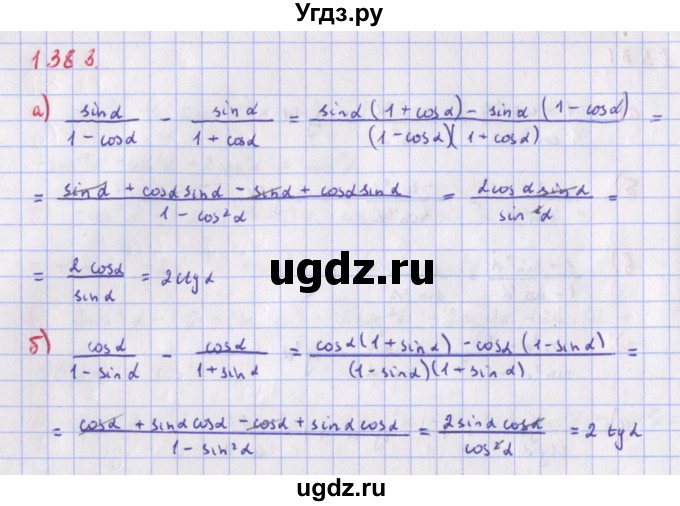 Угдз.ру
1383.
а) sinα/(1 - cosα) - sinα/(1 + cosα) = (sinα(1 + cosα) - sinα(1 - cosα))/((1 - cosα)(1 + cosα)) =
= (sinα + cosα sinα - sinα + cosα sinα)/(1 - cos²α) = (2cosα sinα)/(sin²α) =
= (2cosα)/(sinα) = 2ctgα
ugdz.ru
б) cosα/(1 - sinα) - cosα/(1 + sinα) = (cosα(1 + sinα) - cosα(1 - sinα))/((1 - sinα)(1 + sinα)) =
= (cosα + sinα cosα - cosα + sinα cosα)/(1 - sin²α) = (2sinα cosα)/(cos²α) = 2 tgα
ugdz.ru